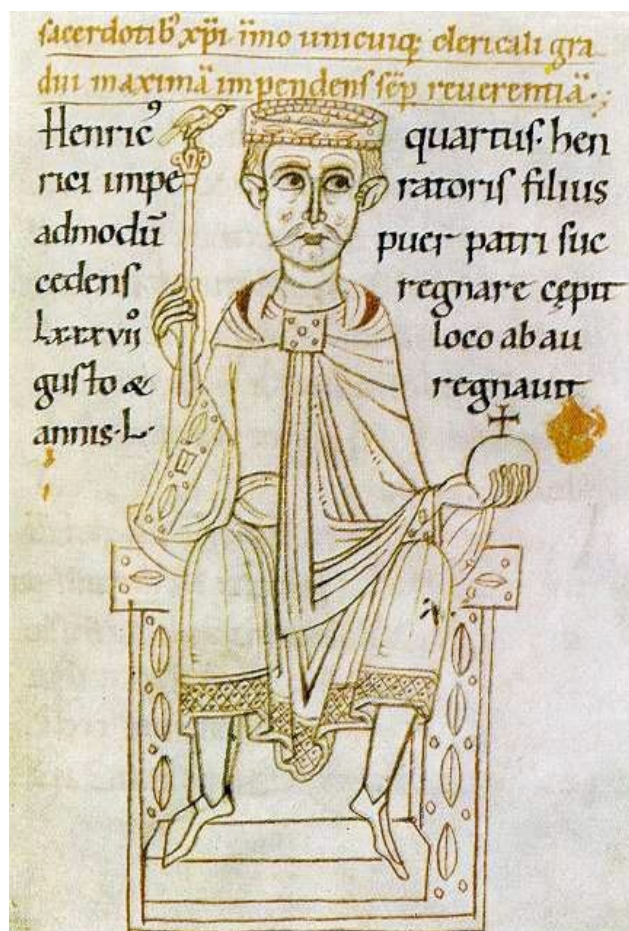 sacerdotib; xp̄i īmo unicuiq; clericali gra
dui maximā impendens sēp reuerentiā.
Henric⁹ quartus. hen
rici impe ratoris filius
admodū puer patri suc
cedens regnare cępit
Lxxxvij° loco ab au
gusto & regnauit
annis · L ·